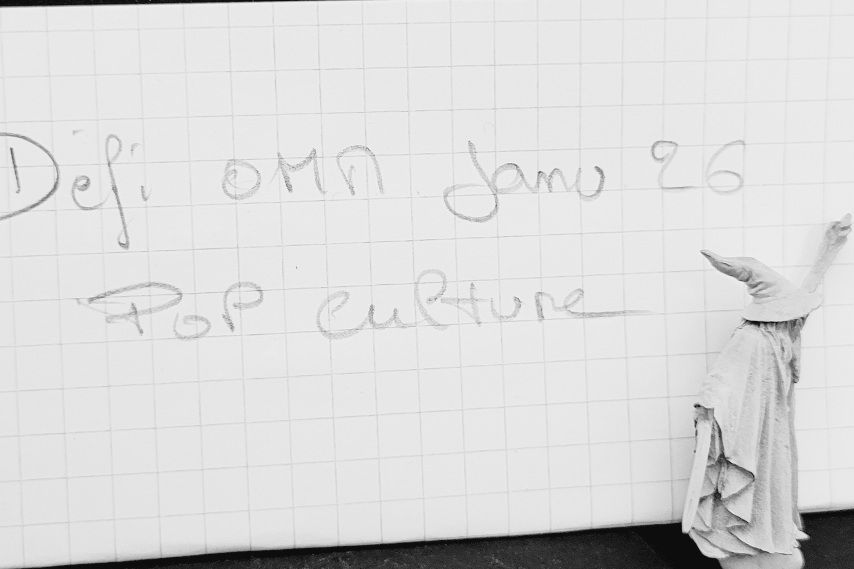 Défi OMM Janv 26
Pop culture